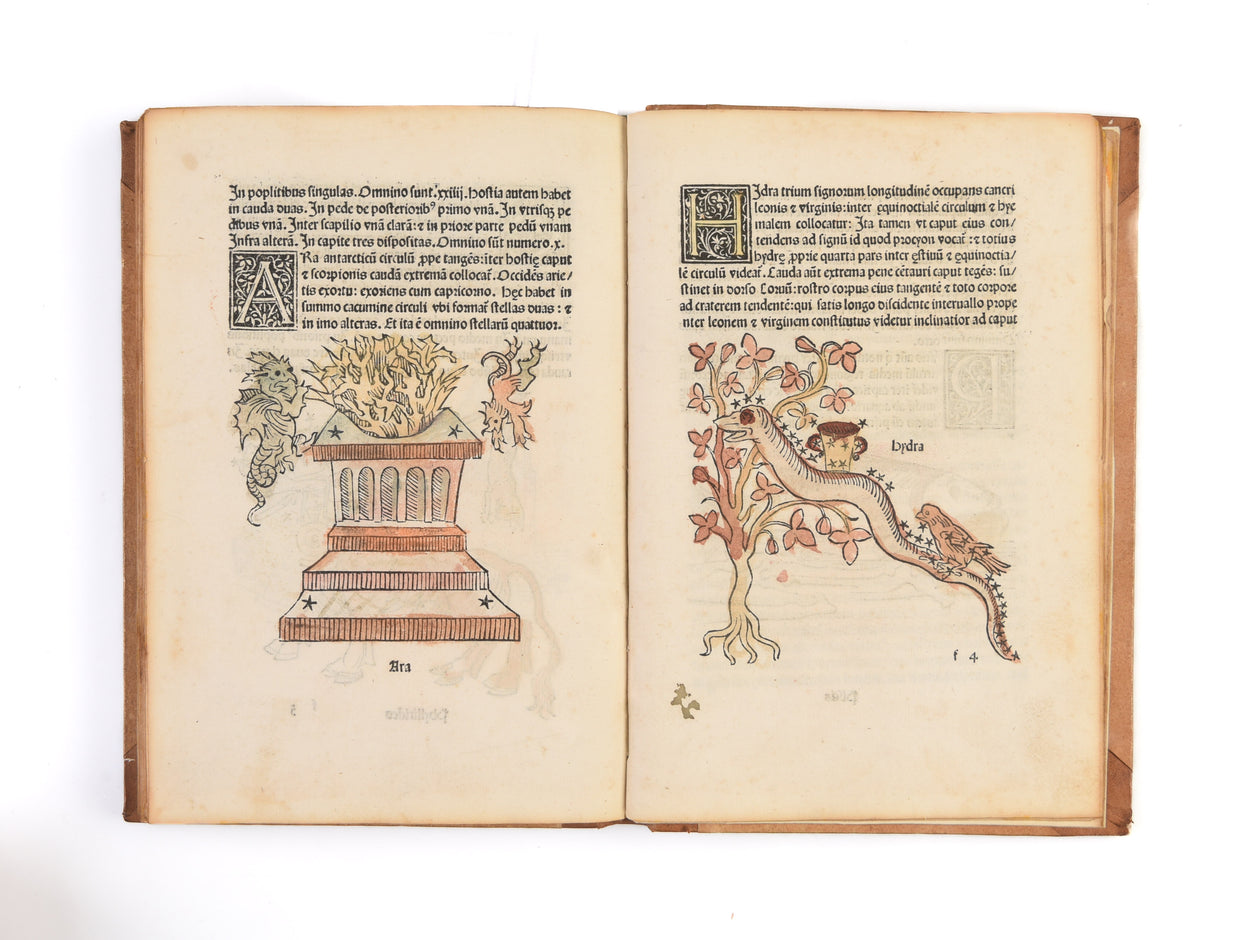 In poplitibus singulas. Omnino sunt xxiiij. hostia autem habet
in cauda duas. In pede de posterioribꝰ primo vnã. In vtrisqꝫ pe
dibus vnã. Inter scapilio vnã clarã: ⁊ in priore parte pedũ vnam
Infra alterã. In capite tres dispositas. Omnino sũt numero.x.
ARa antarcticũ circulũ ꝓpe tangẽs: iter hostię caput
⁊ scorpionis caudã extremã collocat̃. Occidẽs arie/
tis exortu: exoriens cum capricorno. Hęc habet in
summo cacumine circuli vbi format̃ stellas duas: ⁊
in imo alteras. Et ita ẽ omnino stellarũ quattuor.
Ara
HIdra trium signorum longitudinẽ occupans cancri
leonis ⁊ virginis: inter ęquinoctialẽ circulum ⁊ hye
malem collocatur: Ita tamen vt caput eius con/
tendens ad signũ id quod procyon vocat̃: ⁊ totius
hydrę ꝓprie quarta pars inter ęstiuũ ⁊ ęquinoctia/
lẽ circulũ videat̃. Cauda aũt extrema pene cẽtauri caput tegẽs: su/
stinet in dorso Coruũ: rostro corpus eius tangentẽ ⁊ toto corpore
ad craterem tendentẽ: qui satis longo discidente interuallo prope
nter leonem ⁊ virginem constitutus videtur inclinatior ad caput
hydra
f 4